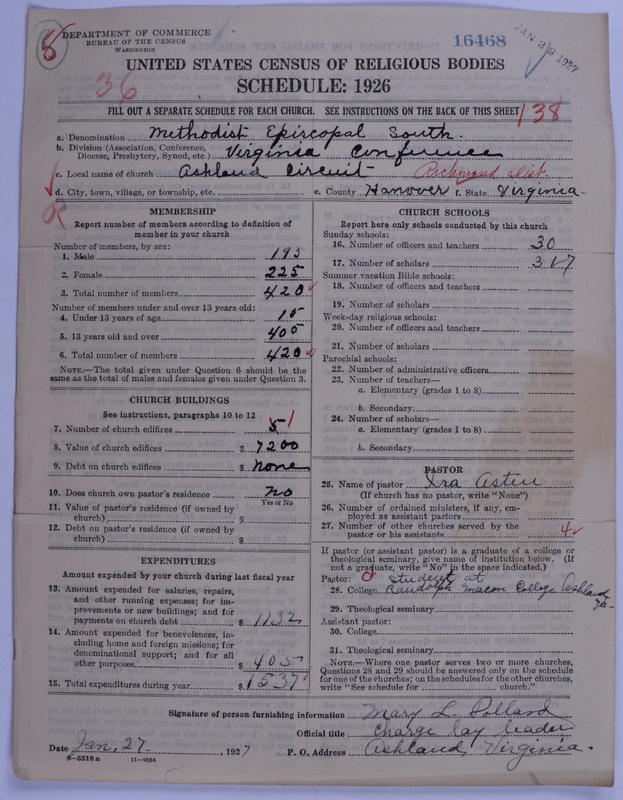 5
DEPARTMENT OF COMMERCE
BUREAU OF THE CENSUS
WASHINGTON
16468
JAN 29 1927
UNITED STATES CENSUS OF RELIGIOUS BODIES
36
SCHEDULE: 1926
FILL OUT A SEPARATE SCHEDULE FOR EACH CHURCH. SEE INSTRUCTIONS ON THE BACK OF THIS SHEET
138
a. Denomination Methodist Episcopal South.
b. Division (Association, Conference, Diocese, Presbytery, Synod, etc.) Virginia Conference
c. Local name of church Ashland Circuit Richmond Dist.
d. City, town, village, or township, etc. e. County Hanover f. State Virginia
MEMBERSHIP
Report number of members according to definition of
member in your church
Number of members, by sex:
1. Male 195
2. Female 225
3. Total number of members 420
Number of members under and over 13 years old:
4. Under 13 years of age 15
5. 13 years old and over 405
6. Total number of members 420
NOTE.—The total given under Question 6 should be the
same as the total of males and females given under Question 3.
CHURCH BUILDINGS
See instructions, paragraphs 10 to 12
7. Number of church edifices 5 1
8. Value of church edifices $ 7200
9. Debt on church edifices $ None
10. Does church own pastor's residence No
Yes or No
11. Value of pastor's residence (if owned by
church) $
12. Debt on pastor's residence (if owned by
church) $
EXPENDITURES
Amount expended by your church during last fiscal year
13. Amount expended for salaries, repairs,
and other running expenses; for im-
provements or new buildings; and for
payments on church debt $ 1132
14. Amount expended for benevolences, in-
cluding home and foreign missions; for
denominational support; and for all
other purposes $ 405
15. Total expenditures during year $ 1537
CHURCH SCHOOLS
Report here only schools conducted by this church
Sunday schools:
16. Number of officers and teachers 30
17. Number of scholars 317
Summer vacation Bible schools:
18. Number of officers and teachers
19. Number of scholars
Week-day religious schools:
20. Number of officers and teachers
21. Number of scholars
Parochial schools:
22. Number of administrative officers
23. Number of teachers—
a. Elementary (grades 1 to 8)
b. Secondary
24. Number of scholars—
a. Elementary (grades 1 to 8)
b. Secondary
PASTOR
25. Name of pastor Ira
(If church has no pastor, write "None")
26. Number of ordained ministers, if any, em-
ployed as assistant pastors
27. Number of other churches served by the
pastor or his assistants 4
If pastor (or assistant pastor) is a graduate of a college or
theological seminary, give name of institution below. (If
not a graduate, write "No" in the space indicated.)
Pastor: student at
28. College Randolph Macon College Ashland Va.
29. Theological seminary
Assistant pastor:
30. College
31. Theological seminary
NOTE.—Where one pastor serves two or more churches,
Questions 28 and 29 should be answered only on the schedule
for one of the churches; on the schedules for the other churches,
write "See schedule for church."
Signature of person furnishing information Mary L. Pollard
Official title Charge lay leader
Date Jan. 27, 1927 P. O. Address Ashland, Virginia.
8—5318 a 11—9854